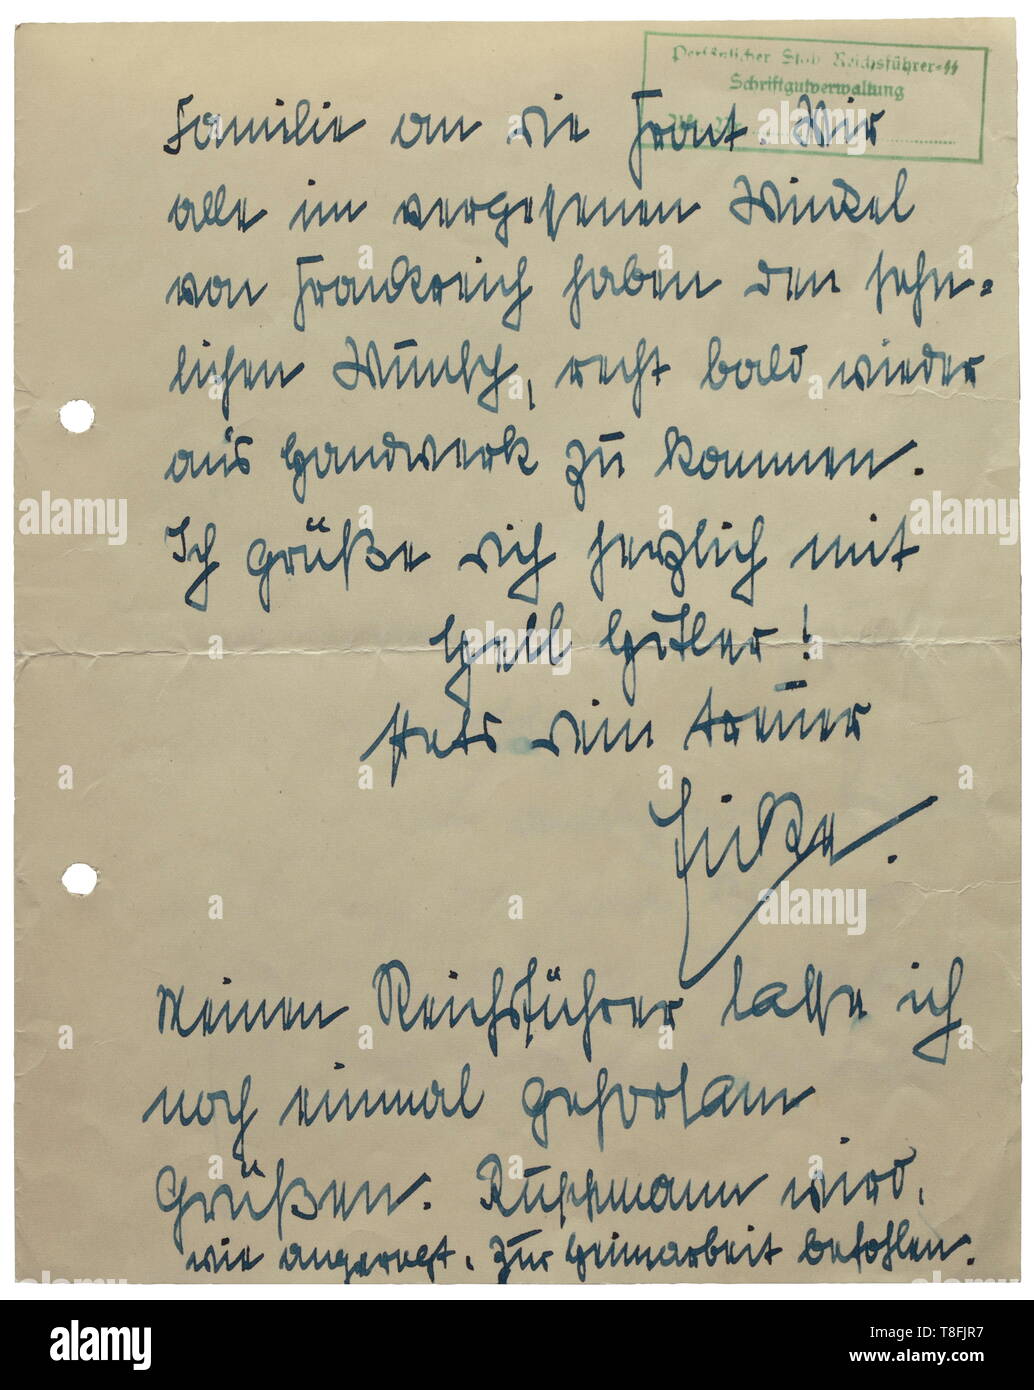 Persönlicher Stab Reichsführer-SS
Schriftgutverwaltung
Familie an die Front. Wir
alle im vergessenen Winkel
von Frankreich haben den sehn=
lichen Wunsch, recht bald wieder
aus Handwerk zu kommen.
Ich grüße Dich herzlich mit
Heil Hitler!
stets Dein treuer
Eicke.
Meinen Reichsführer lasse ich
noch einmal gehorsam
Grüßen. wird,
wie angeregt, zur Heimarbeit befohlen.
alamy
Image ID: T8FJR7
www.alamy.com